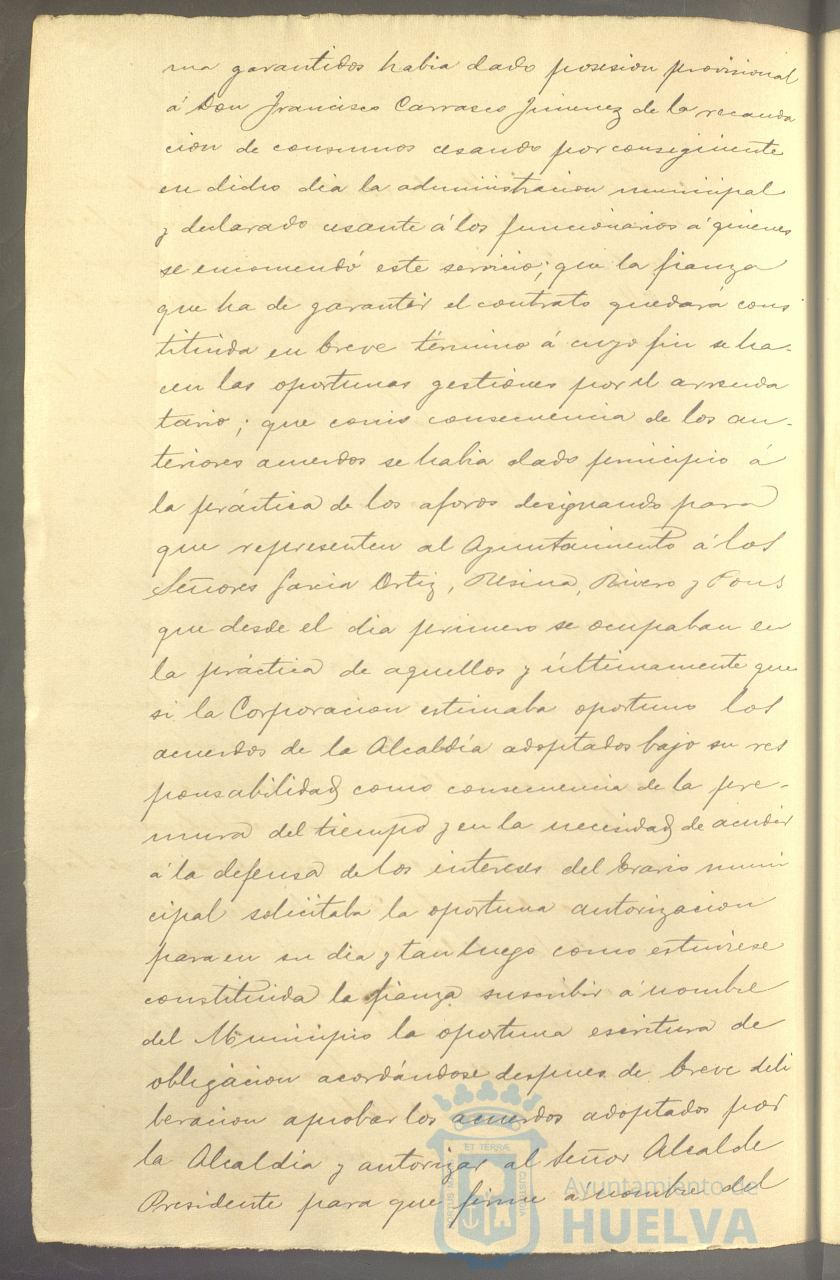 ma garantidos habia dado posesion provisional
á Don Francisco Carrasco Jimenez de la recauda
cion de consumos cesando por consiguiente
en dicho dia la administracion municipal
y declarado cesante á los funcionarios á quienes
se encomendó este servicio; que la fianza
que ha de garantir el contrato quedará cons
tituida en breve término á cuyo fin se ha-
cen las oportunas gestiones por el arrenda
tario; que como consecuencia de los an-
teriores acuerdos se habia dado principio á
la práctica de los aforos designando para
que representen al Ayuntamiento á los
Señores Garcia Ortiz, Resina, Rivero y Pons
que desde el dia primero se ocupaban en
la práctica de aquellos y últimamente que
si la Corporacion estimaba oportuno los
acuerdos de la Alcaldía adoptados bajo su res
ponsabilidad como consecuencia de la pre-
mura del tiempo y en la necesidad de acudir
á la defensa de los intereses del Erario muni
cipal solicitaba la oportuna autorizacion
para en su dia y tan luego como estuviese
constituida la fianza suscribir á nombre
del Municipio la oportuna escritura de
obligacion acordándose despues de breve deli
beracion aprobar los acuerdos adoptados por
la Alcaldía y autorizar al Señor Alcalde
Presidente para que firme a nombre del
ET TERRÆ
CUSTODIA
Ayuntamiento de
HUELVA